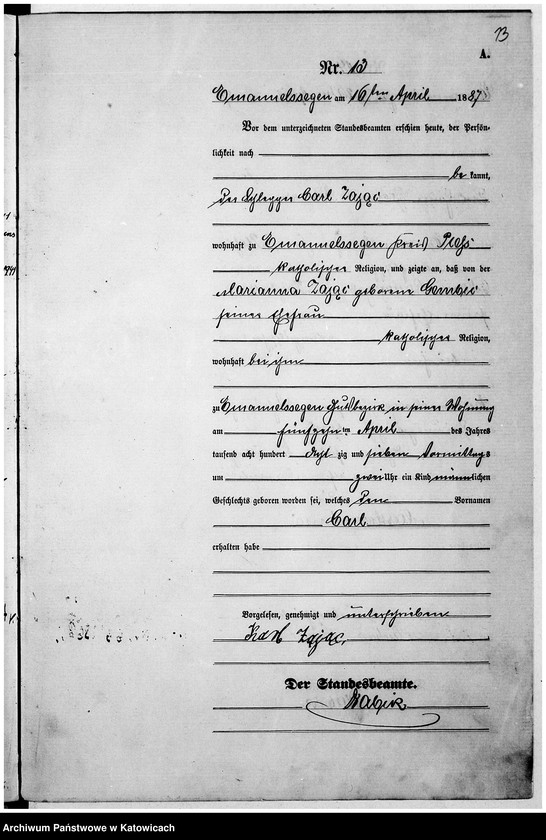 13
A.
Nr. 13
Emanuelssegen am 16ten April 1887
Vor dem unterzeichneten Standesbeamten erschien heute, der Persön-
lichkeit nach
be kannt,
der Schlepper Carl Zająć
wohnhaft zu Emanuelssegen Kreis Pleß
katholischer Religion, und zeigte an, daß von der
Marianna Zająć geborene
seiner Ehefrau
katholischer Religion,
wohnhaft bei ihm
zu Emanuelssegen Gutsbezirk in seiner Wohnung
am fünfzehn ten April des Jahres
tausend acht hundert acht zig und sieben Vormittags
um zwei Uhr ein Kind männlichen
Geschlechts geboren worden sei, welches den Vornamen
Carl
erhalten habe
Vorgelesen, genehmigt und unterschrieben
Karl Zając
Der Standesbeamte.
Archiwum Państwowe w Katowicach